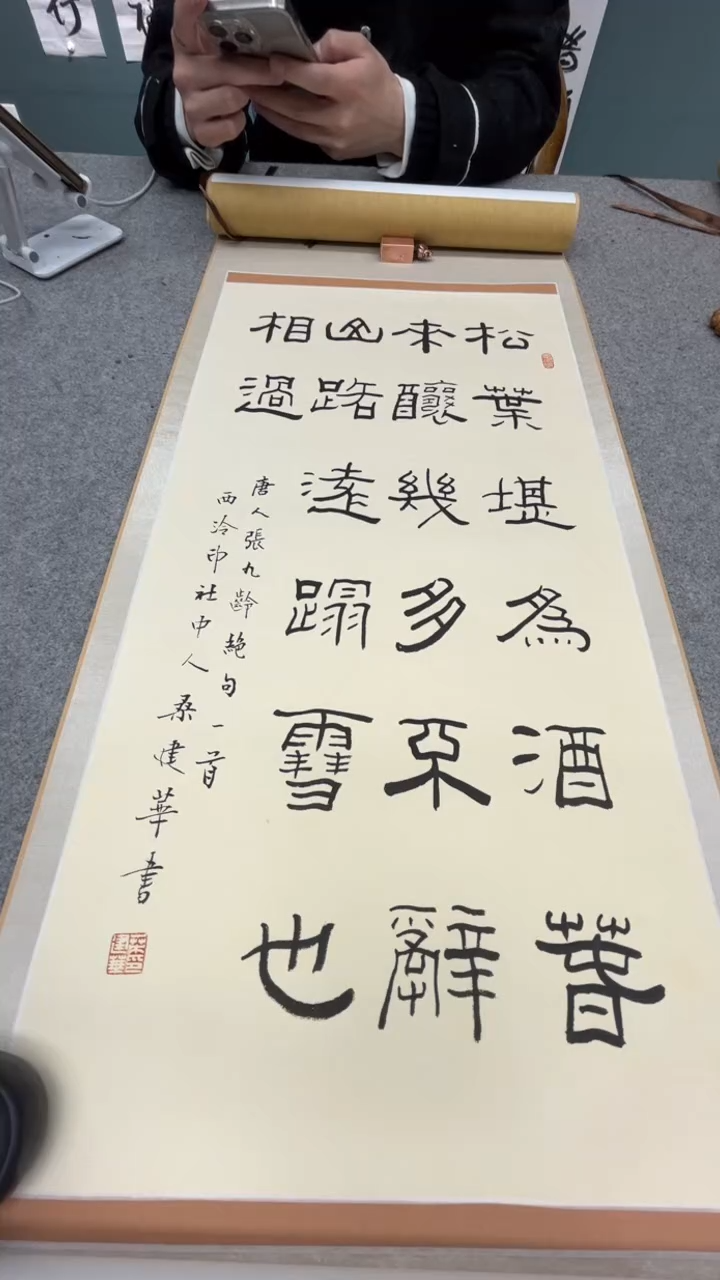 松葉堪為酒春
来釀幾多不辭
山路遠蹋雪也
相過
唐人張九齡絶句一首
西泠印社中人桑建華書